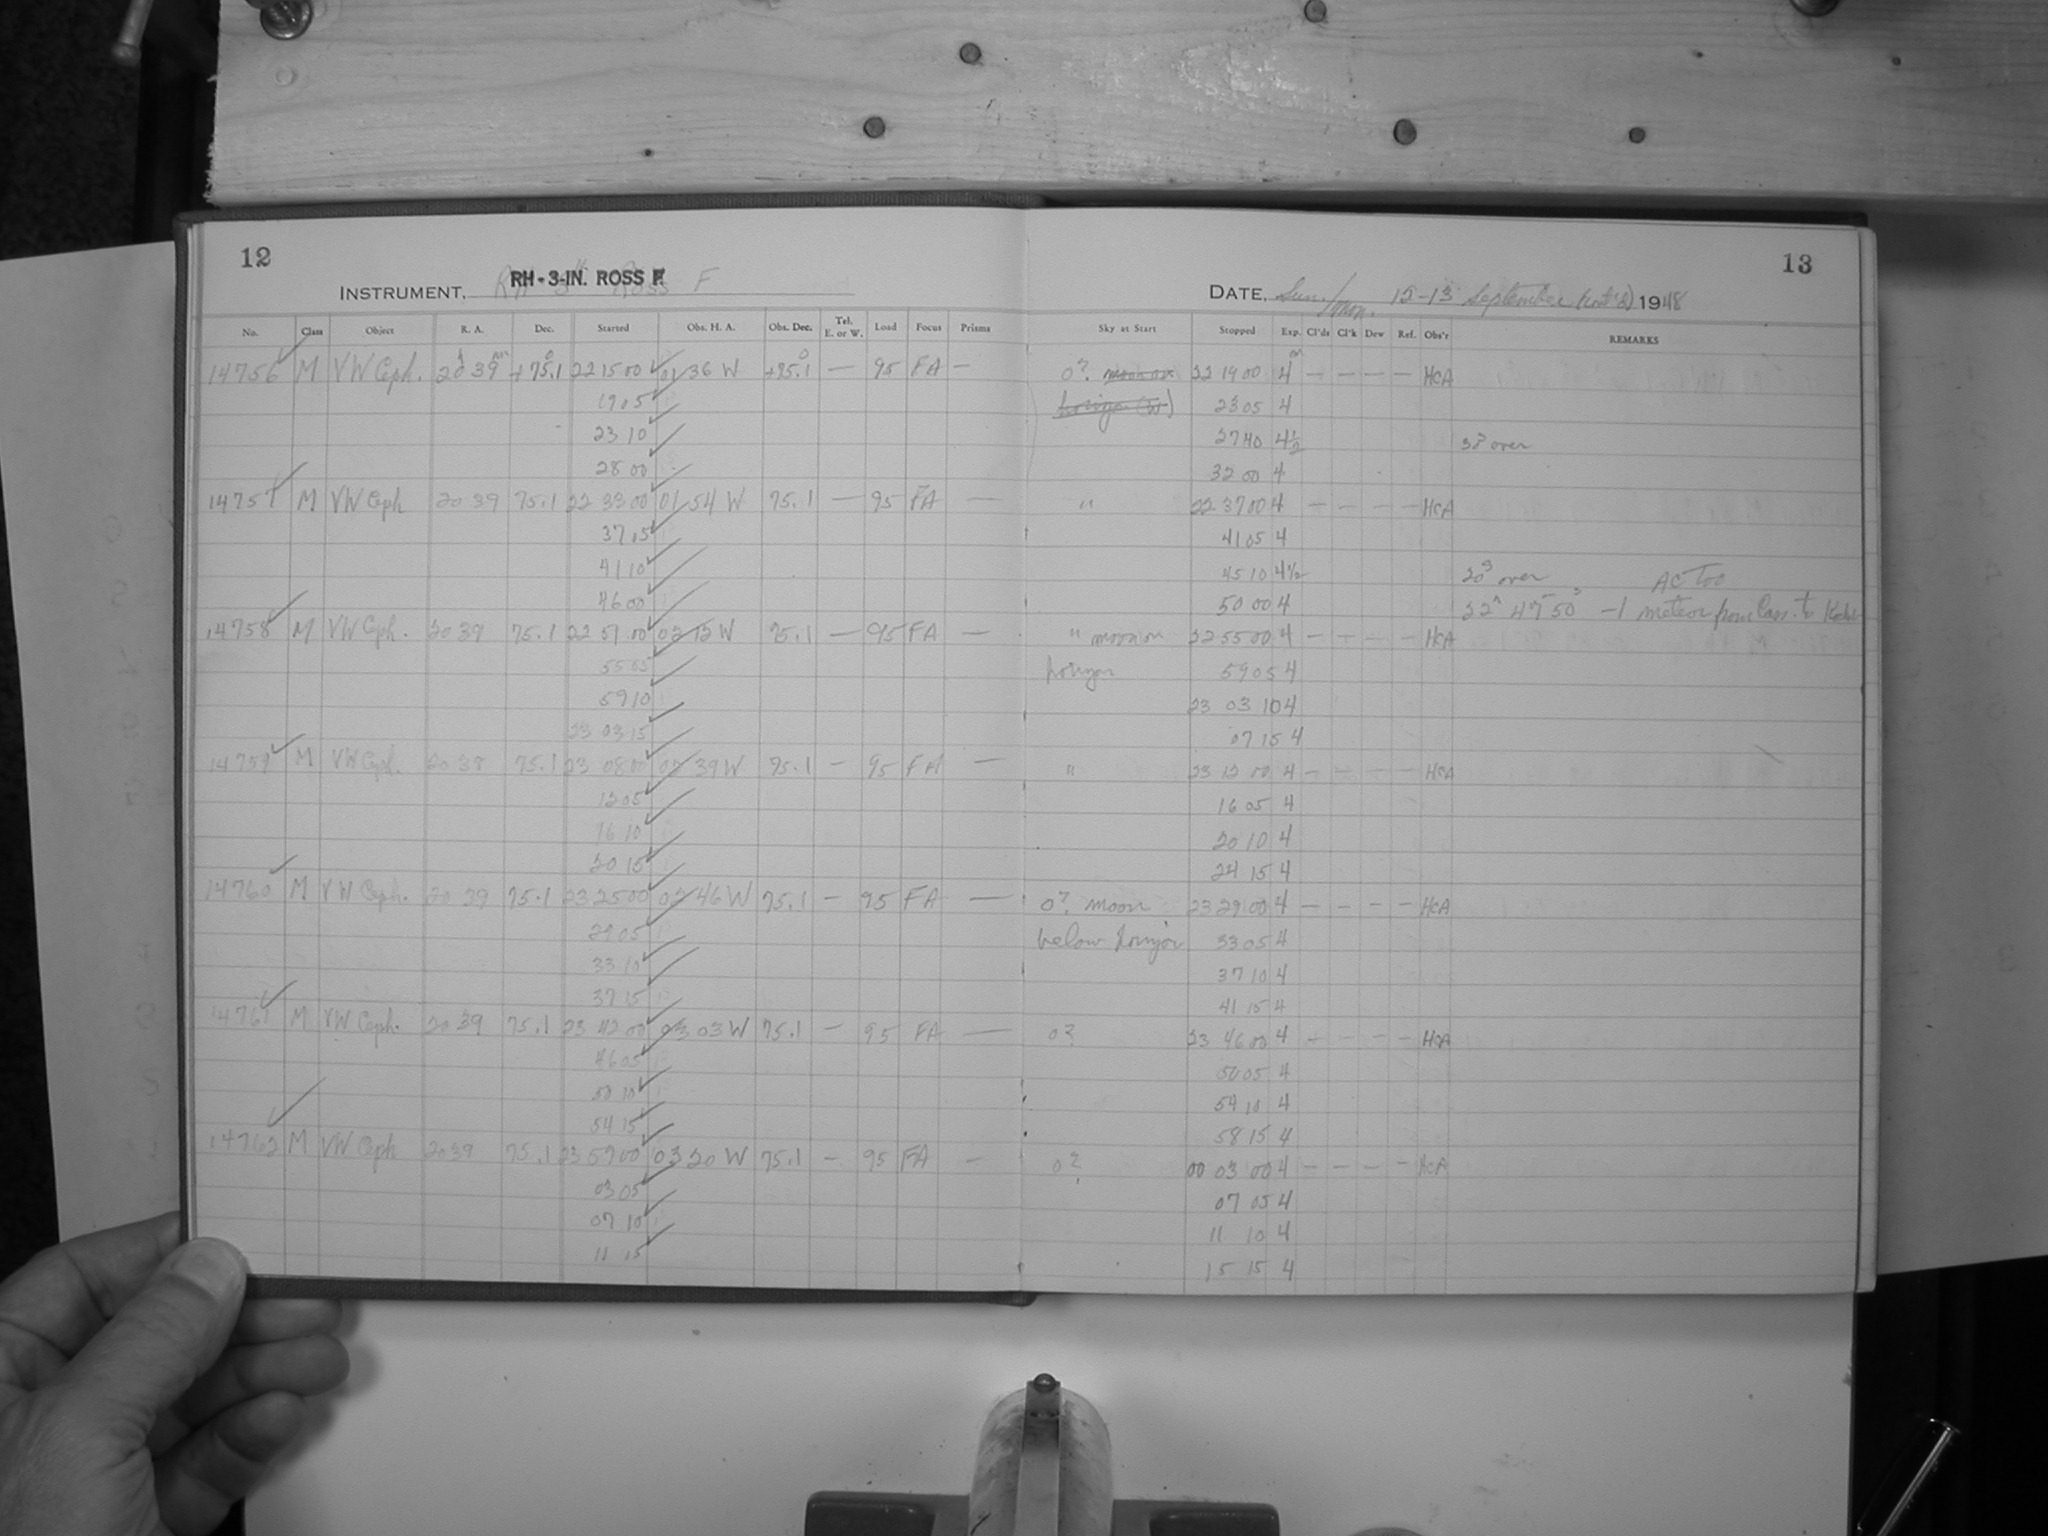 12
13
INSTRUMENT, RH-3-IN. ROSS F
DATE, Sun./Mon. 12-13 September (cont'd) 1948
No. Class Object R. A. Dec. Started Obs. H. A. Obs. Dec. Tel. E. or W. Load Focus Prisms Sky at Start Stopped Exp. Cl'ds Cl'k Dew Ref. Obs'r REMARKS
14756 M VW Ceph. 20h 39m +75.1° 22 15 00 01 36 W +75.1° — 95 FA — 0? moon on 22 19 00 4m — — — — HCA
19 05 horizon (W) 23 05 4
23 10 27 40 4½ 30s over
28 00 32 00 4
14757 M VW Ceph 20 39 75.1 22 33 00 01 54 W 75.1 — 95 FA — " 22 37 00 4 — — — — HCA
37 05 41 05 4
41 10 45 10 4½ 20s over AC Too
46 00 50 00 4 22h 47m 50s —1 meteor from Cass. to
14758 M VW Ceph. 20 39 75.1 22 51 00 02 12 W 75.1 — 95 FA — " moon on 22 55 00 4 — — — — HCA
55 05 horizon 59 05 4
59 10 23 03 10 4
23 03 15 07 15 4
14759 M VW Ceph. 20 39 75.1 23 08 00 02 39 W 75.1 — 95 FA — " 23 12 00 4 — — — — HCA
12 05 16 05 4
16 10 20 10 4
20 15 24 15 4
14760 M VW Ceph. 20 39 75.1 23 25 00 02 46 W 75.1 — 95 FA — 0? moon 23 29 00 4 — — — — HCA
29 05 below horizon 33 05 4
33 10 37 10 4
37 15 41 15 4
14761 M VW Ceph. 20 39 75.1 23 42 00 03 03 W 75.1 — 95 FA — 0? 23 46 00 4 — — — — HCA
46 05 50 05 4
50 10 54 10 4
54 15 58 15 4
14762 M VW Ceph 20 39 75.1 23 59 00 03 20 W 75.1 — 95 FA — 0? 00 03 00 4 — — — — HCA
03 05 07 05 4
07 10 11 10 4
11 15 15 15 4